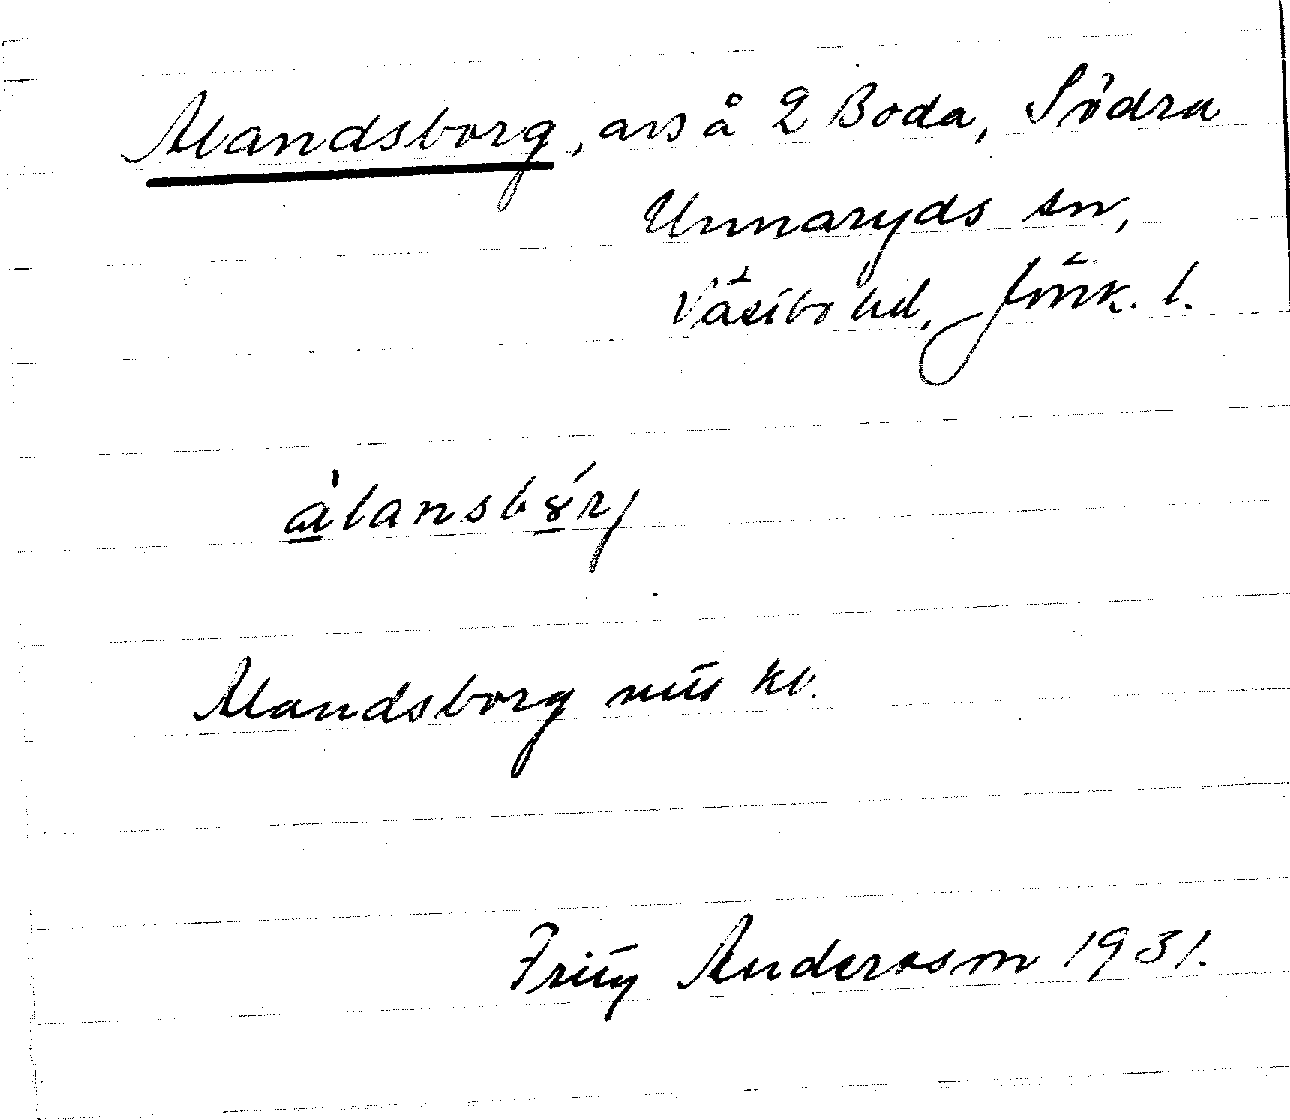 Alandsborg, avs å 2 Boda, Södra
Unnaryds sn,
Västbo hd, Jönk. l.
àlansbórj
Alandsborg mtl kb.
Fritz Anderson 1931.